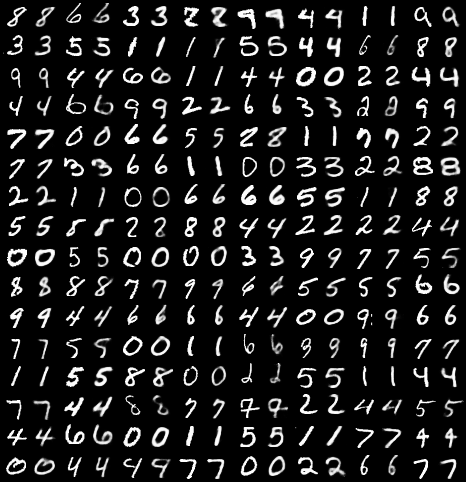 8 8 6 6 3 3 2 2 9 9 4 4 1 1 9 9
3 3 5 5 1 1 1 1 5 5 4 4 6 6 8 8
9 9 4 4 6 6 1 1 4 4 0 0 2 2 4 4
4 4 6 6 9 9 2 2 6 6 3 3 2 2 9 9
7 7 0 0 6 6 5 5 2 8 1 1 7 7 2 2
7 7 3 3 6 6 1 1 0 0 3 3 2 2 8 8
2 2 1 1 0 0 6 6 6 6 5 5 1 1 8 8
5 5 8 8 2 2 8 8 4 4 2 2 2 2 4 4
0 0 5 5 0 0 0 0 3 3 9 9 7 7 5 5
8 8 8 8 7 7 9 9 6 6 5 5 5 5 6 6
9 9 4 4 6 6 6 6 4 4 0 0 9 9 6 6
7 7 5 5 0 0 1 1 6 6 9 9 9 9 7 7
1 1 5 5 8 8 0 0 2 2 5 5 1 1 4 4
7 7 4 4 8 8 7 7 7 9 2 2 4 4 5 5
4 4 6 6 0 0 1 1 5 5 1 1 7 7 4 4
0 0 4 4 9 9 7 7 0 0 2 2 6 6 7 7